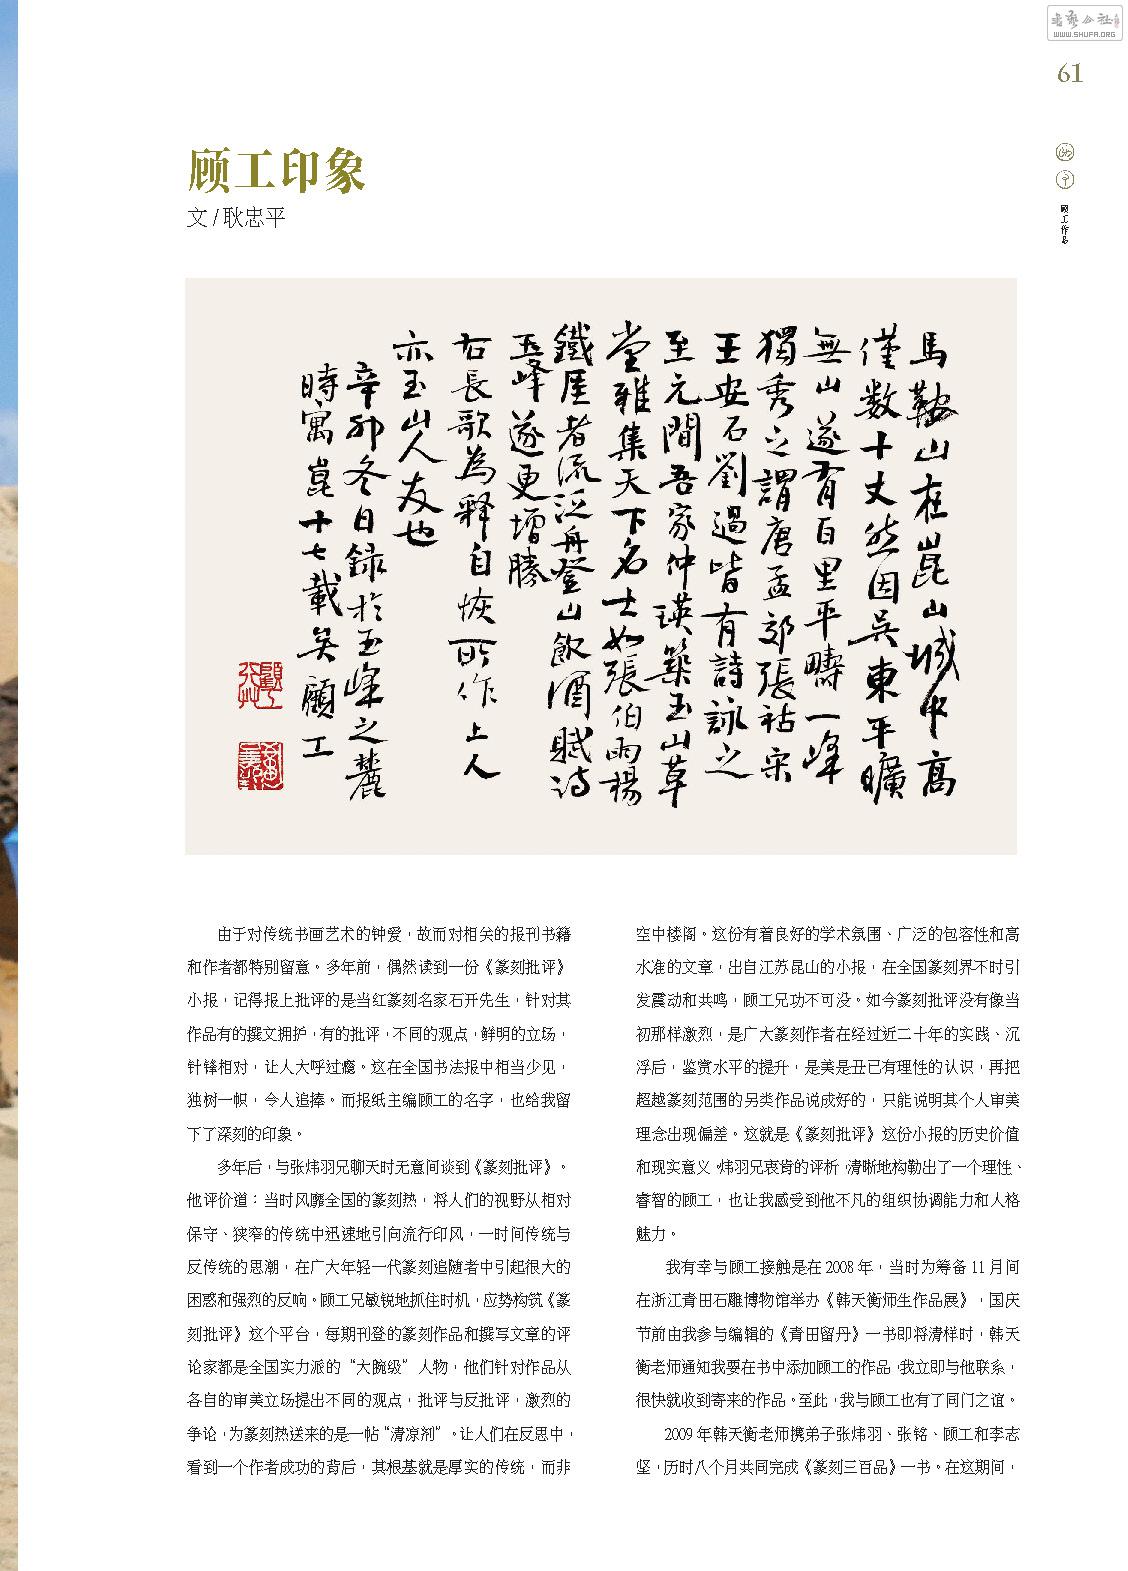 WWW.SHUFA.ORG
61
顾工作品
顾工印象
文 / 耿忠平
馬鞍山在崑山城中高
僅数十丈然因吳東平曠
無山遂有百里平疇一峰
獨秀之謂唐孟郊張祜宋
王安石劉過皆有詩詠之
至元間吾家仲瑛築玉山草
堂雅集天下名士如張伯雨楊
鐵厓者流泛舟登山飲酒賦诗
玉峰遂更增勝
右長歌為釋自恢所作上人
亦玉山人友也
辛卯冬日録於玉峰之麓
時寓崑十七載矣顧工
由于对传统书画艺术的钟爱，故而对相关的报刊书籍
和作者都特别留意。多年前，偶然读到一份《篆刻批评》
小报，记得报上批评的是当红篆刻名家石开先生，针对其
作品有的撰文拥护，有的批评，不同的观点，鲜明的立场，
针锋相对，让人大呼过瘾。这在全国书法报中相当少见，
独树一帜，令人追捧。而报纸主编顾工的名字，也给我留
下了深刻的印象。
多年后，与张炜羽兄聊天时无意间谈到《篆刻批评》。
他评价道：当时风靡全国的篆刻热，将人们的视野从相对
保守、狭窄的传统中迅速地引向流行印风，一时间传统与
反传统的思潮，在广大年轻一代篆刻追随者中引起很大的
困惑和强烈的反响。顾工兄敏锐地抓住时机，应势构筑《篆
刻批评》这个平台，每期刊登的篆刻作品和撰写文章的评
论家都是全国实力派的“大腕级”人物，他们针对作品从
各自的审美立场提出不同的观点，批评与反批评，激烈的
争论，为篆刻热送来的是一帖“清凉剂”。让人们在反思中，
看到一个作者成功的背后，其根基就是厚实的传统，而非
空中楼阁。这份有着良好的学术氛围、广泛的包容性和高
水准的文章，出自江苏昆山的小报，在全国篆刻界不时引
发震动和共鸣，顾工兄功不可没。如今篆刻批评没有像当
初那样激烈，是广大篆刻作者在经过近二十年的实践、沉
浮后，鉴赏水平的提升，是美是丑已有理性的认识，再把
超越篆刻范围的另类作品说成好的，只能说明其个人审美
理念出现偏差。这就是《篆刻批评》这份小报的历史价值
和现实意义。炜羽兄衷肯的评析，清晰地构勒出了一个理性、
睿智的顾工，也让我感受到他不凡的组织协调能力和人格
魅力。
我有幸与顾工接触是在 2008 年，当时为筹备 11 月间
在浙江青田石雕博物馆举办《韩天衡师生作品展》，国庆
节前由我参与编辑的《青田留丹》一书即将清样时，韩天
衡老师通知我要在书中添加顾工的作品，我立即与他联系，
很快就收到寄来的作品。至此，我与顾工也有了同门之谊。
2009 年韩天衡老师携弟子张炜羽、张铭、顾工和李志
坚，历时八个月共同完成《篆刻三百品》一书。在这期间，